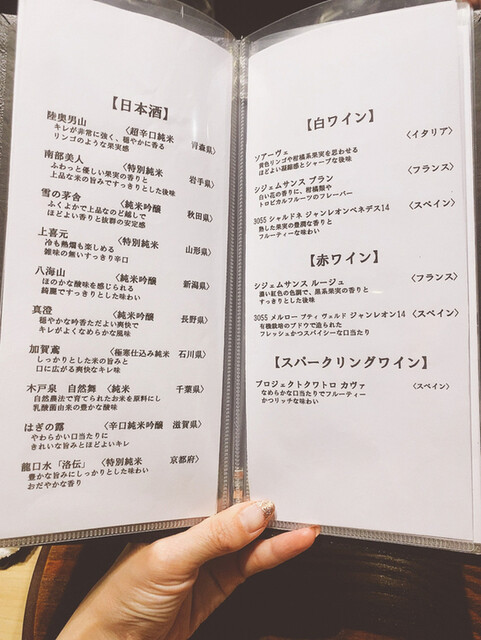 【日本酒】
陸奥男山 〈超辛口純米 青森県〉
キレが非常に強く、穏やかに香る
リンゴのような果実感
南部美人 〈特別純米 岩手県〉
ふわっと優しい果実の香りと
上品な米の旨みですっきりとした後味
雪の茅舎 〈純米吟醸 秋田県〉
ふくよかで上品なのど越しで
ほどよい香りと抜群の安定感
上喜元 〈特別純米 山形県〉
冷も熱燗も楽しめる
雑味の無いすっきり辛口
八海山 〈純米吟醸 新潟県〉
ほのかな酸味を感じられる
綺麗ですっきりとした味わい
真澄 〈純米吟醸 長野県〉
穏やかな吟香ただよい爽快で
キレがよくなめらかな風味
加賀鳶 〈極寒仕込み純米 石川県〉
しっかりとした米の旨みと
口に広がる爽快なキレ味
木戸泉 自然舞 〈純米 千葉県〉
自然農法で育てられたお米を原料にし
乳酸菌由来の豊かな酸味
はぎの露 〈辛口純米吟醸 滋賀県〉
やわらかい口当たりに
きれいな旨みとほどよいキレ
龍口水「洛伝」 〈特別純米 京都府〉
豊かな旨みにしっかりとした味わい
おだやかな香り
【白ワイン】
ソアーヴェ 〈イタリア〉
黄色リンゴや柑橘系果実を思わせる
ほどよい凝縮感とシャープな後味
シジェムサンス ブラン 〈フランス〉
白い花の香りに、柑橘類や
トロピカルフルーツのフレーバー
3055 シャルドネ ジャンレオンペネデス14 〈スペイン〉
熟した果実の豊潤な香りと
フルーティーな味わい
【赤ワイン】
シジェムサンス ルージュ 〈フランス〉
濃い紅色の色調で、黒系果実の香りと
すっきりとした後味
3055 メルロー プティ ヴェルド ジャンレオン14 〈スペイン〉
有機栽培のブドウで造られた
フレッシュかつスパイシーな口当たり
【スパークリングワイン】
プロジェクトクワトロ カヴァ 〈スペイン〉
なめらかな口当たりでフルーティー
かつリッチな味わい